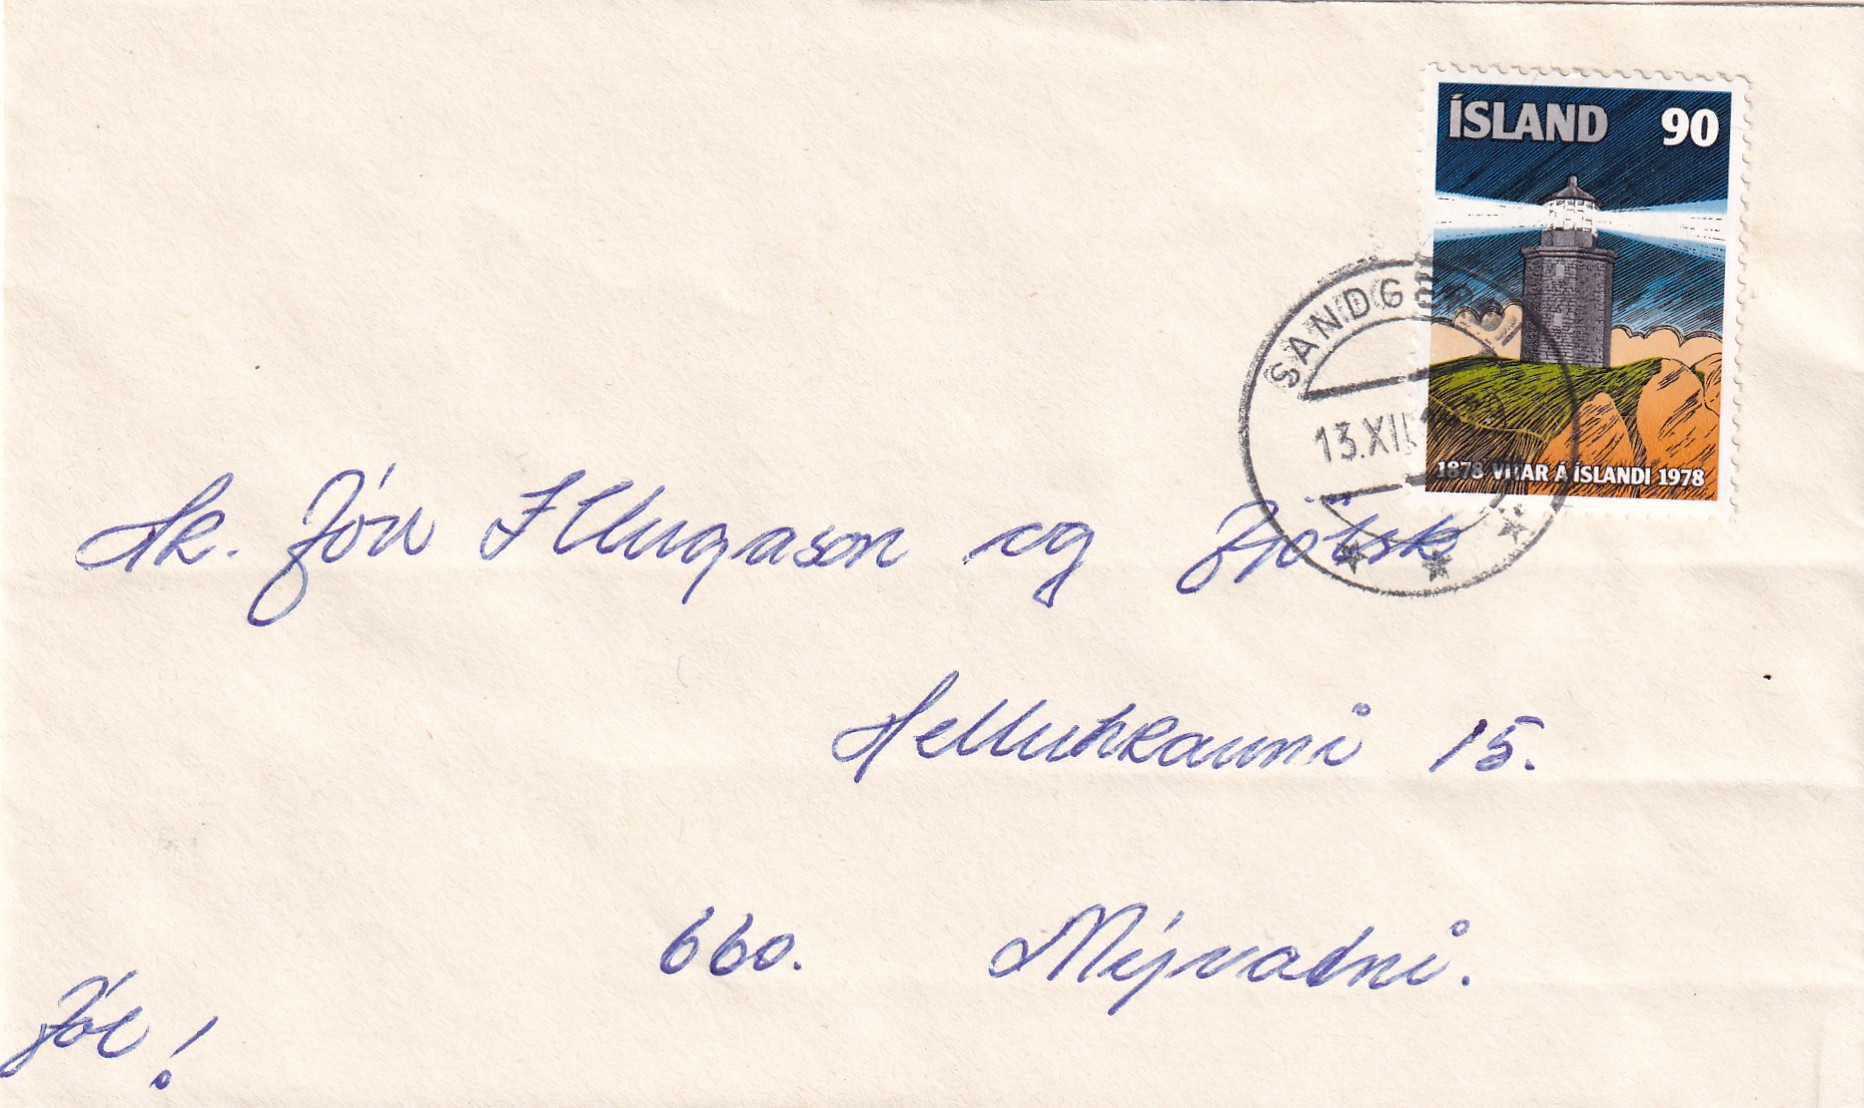 ÍSLAND 90
1878 VITAR Á ÍSLANDI 1978
SANDGERÐI
13.XII
Hr. Jón Illugason og Fjölsk
Helluhrauni 15.
660. Mývatni.
Jól!